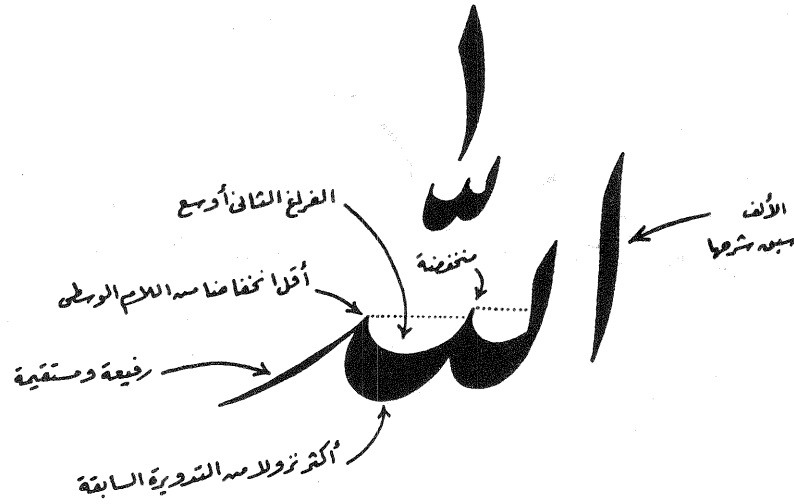 الله
الفراغ الثانى أوسع
الألف
سبق شرحها
منخفضة
أقل انخفاضا من اللام الوسطى
رفيعة ومستقيمة
أكثر نزولا من التدويرة السابقة